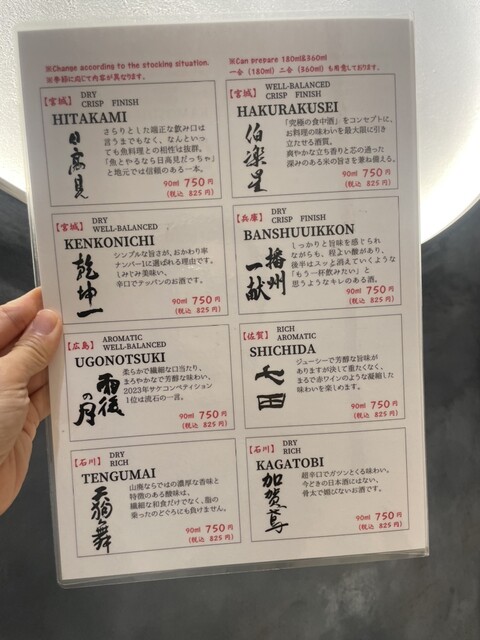 ※Change according to the stocking situation.
※季節に応じて内容が異なります。
※Can prepare 180ml&360ml
一合(180ml)二合(360ml)も用意しております。
【宮城】 DRY
CRISP FINISH
HITAKAMI
日高見
さらりとした端正な飲み口は
言うまでもなく、なんといっ
ても魚料理との相性は抜群。
「魚とやるなら日高見だっちゃ」
と地元では信頼のある一本。
90ml 750円
(税込 825円)
【宮城】 WELL-BALANCED
CRISP FINISH
HAKURAKUSEI
伯楽星
「究極の食中酒」をコンセプトに、
お料理の味わいを最大限に引き
立たせる酒質。
爽やかな立ち香りと芯の通った
深みのある米の旨さを兼ね備える。
90ml 750円
(税込 825円)
【宮城】 DRY
WELL-BALANCED
KENKONICHI
乾坤一
シンプルな旨さが、おかわり率
ナンバー1に選ばれる理由です。
しみじみ美味い、
辛口でテッパンのお酒です。
90ml 750円
(税込 825円)
【兵庫】 DRY
CRISP FINISH
BANSHUUIKKON
播州一献
しっかりと旨味を感じられ
ながらも、程よい酸があり、
後半はスッよ消えていくような
「もう一杯飲みたい」と
思うようなキレのある酒。
90ml 750円
(税込 825円)
【広島】 AROMATIC
WELL-BALANCED
UGONOTSUKI
雨後の月
柔らかで繊細な口当たり、
まろやかなで芳醇な味わい。
2023年サケコンペティション
1位は流石の一言。
90ml 750円
(税込 825円)
【佐賀】 RICH
AROMATIC
SHICHIDA
七田
ジューシーで芳醇な旨味が
ありますが決して重たくなく、
まるで赤ワインのような凝縮した
味わいを楽しめます。
90ml 750円
(税込 825円)
【石川】 DRY
RICH
TENGUMAI
天狗舞
山廃ならではの濃厚な香味と
特徴のある酸味は、
繊細な和食だけでなく、脂の
乗ったのどぐろにも負けません。
90ml 750円
(税込 825円)
【石川】 DRY
RICH
KAGATOBI
加賀鳶
超辛口でガツンとくる味わい。
今どきの日本酒にはない、
骨太で媚びないお酒です。
90ml 750円
(税込 825円)